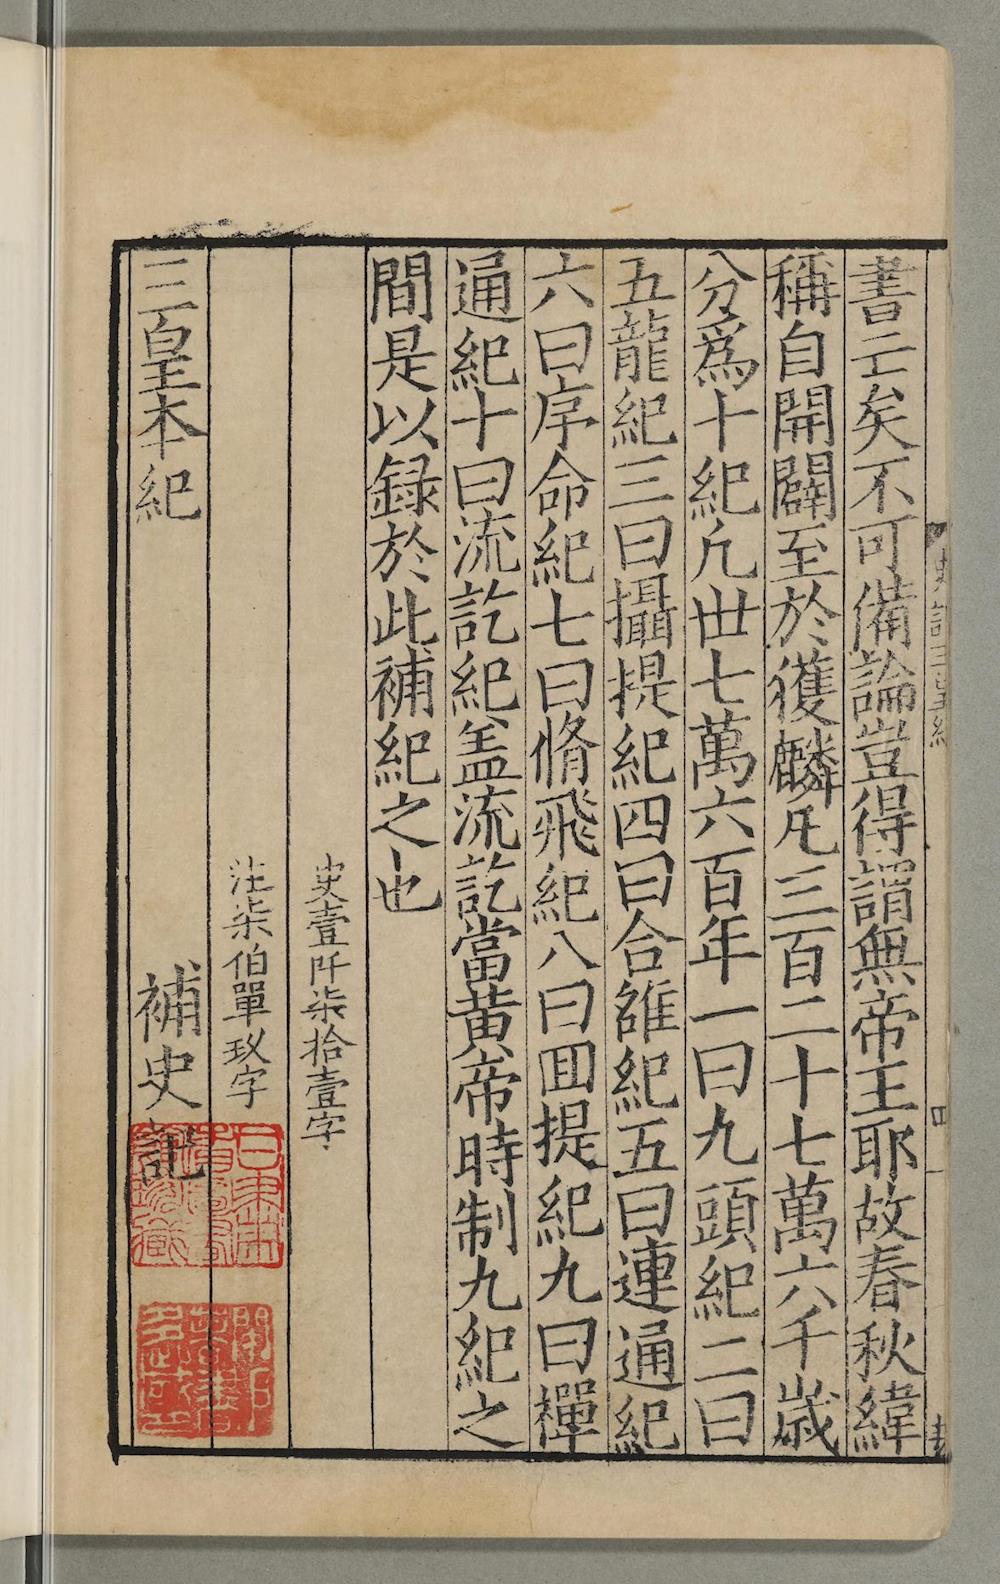 書亡矣不可備論豈得謂無帝王耶故春秋緯
稱自開闢至於獲麟凡三百二十七萬六千歲
分爲十紀凡世七萬六百年一曰九頭紀二曰
五龍紀三曰攝提紀四曰合雒紀五曰連通紀
六曰序命紀七曰脩飛紀八曰囬提紀九曰禪
通紀十曰流訖紀盖流訖當黄帝時制九紀之
間是以録於此補紀之也
史壹阡柒拾壹字
注柒伯單玖字
三皇本紀
補史記